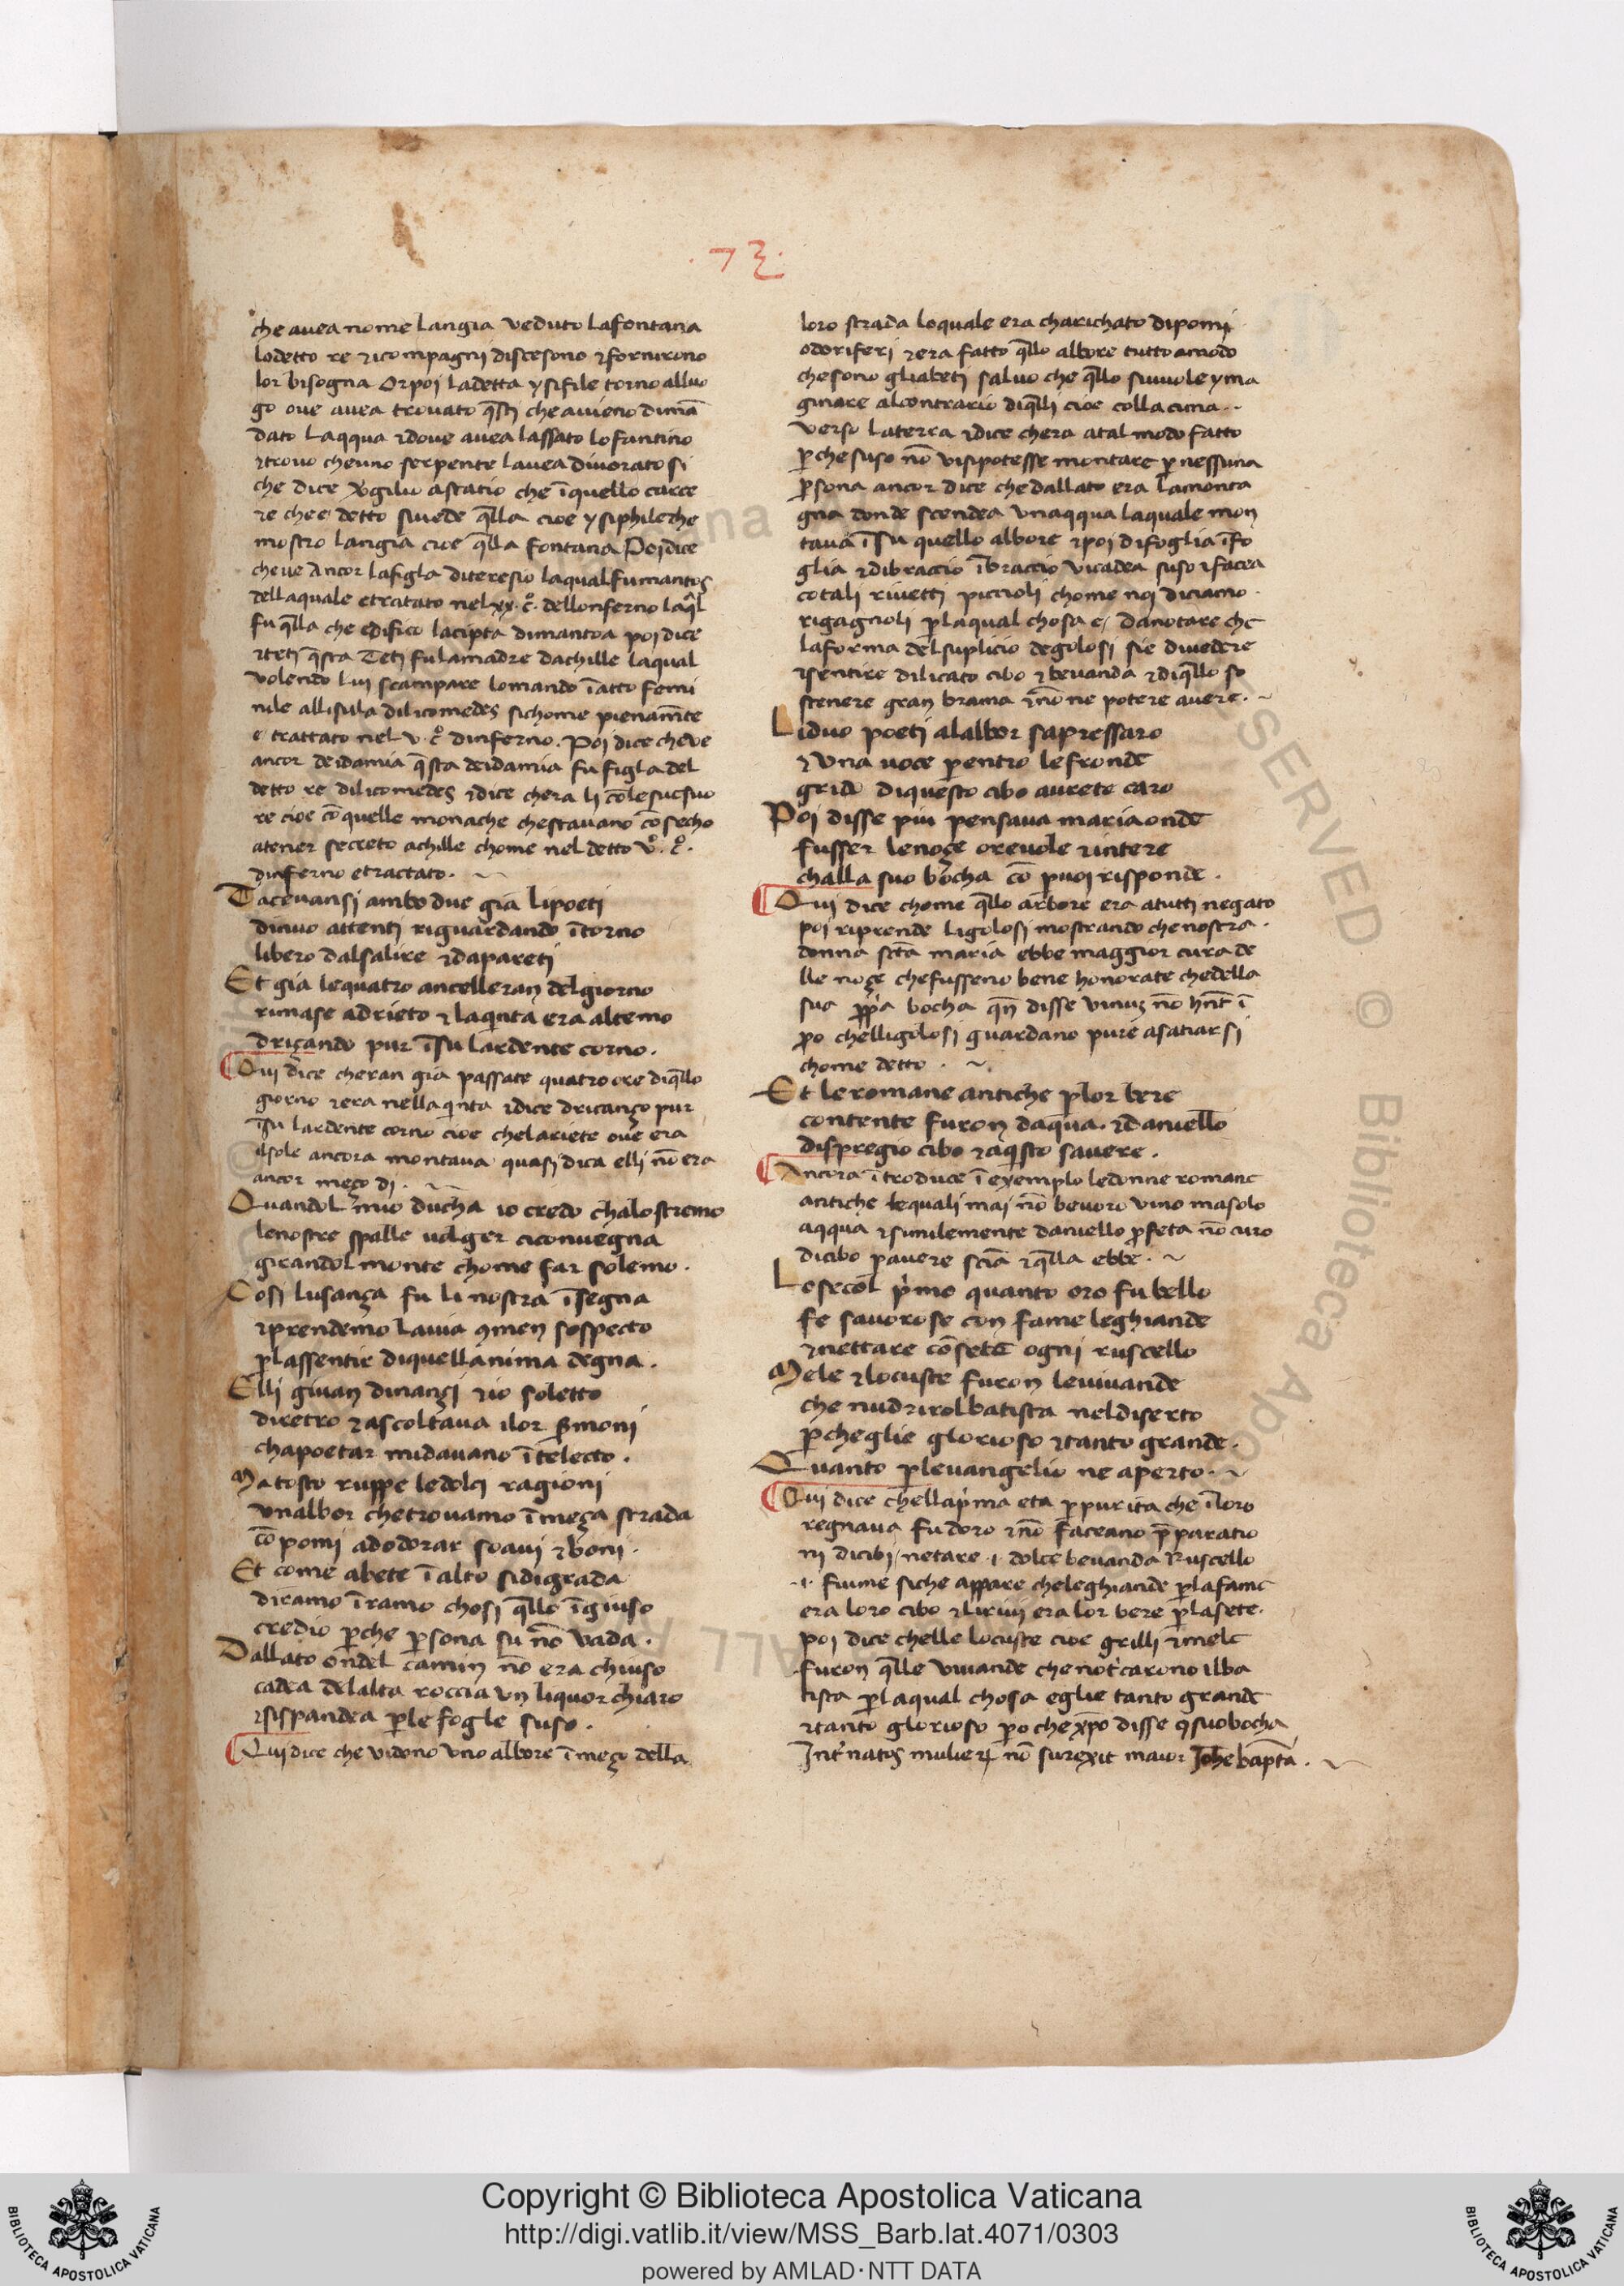 .73.
che avea nome langia veduto lafontana
lodetto re ⁊icompagni discesono ⁊fornirono
lor bisogna Or poi ladetta ysifile torno alluo
go ove avea trovato q̄sti che avieno dimā
dato laqqua ⁊dove avea lassato lo fantino
⁊trovo cheuno serpente lavea divorato si
che dice Vgilio astatio che ī quello carce
re che e detto sivede q̄lla cioe ysiphile che
mostro langia cioe q̄lla fontana Poi dice
cheve Ancor lafigla ditiresio laqual fu mantos
dellaquale e tratato nel xx. c̊. dellonferno laq̄l
fu q̄lla che edifico lacipta dimantoa poi dice
⁊teti q̄sta Teti fu lamadre dachille laqual
volendo lui scampare lomando ī atto femi
nile allisula dilicomedes sichome pienam̄te
e trattato nel v. c̊ dinferno. Poi dice cheve
ancor deidamia q̄sta deidamia fu figla del
detto re dilicomedes ⁊dice chera li cō le sue suo
re cioe cō quelle monache chestavano cō secho
atener secreto achille chome nel detto v̊. c̊.
dinferno e tractato.
Tacevansi ambo due gia lipoeti
dinuo attenti riguardando ītorno
libero dalsalire ⁊dapareti
Et gia lequatro ancelle eran del giorno
rimase adrieto ⁊laq̄nta era altemo
driçando pur īsu lardente corno.
Qui dice cheran gia passate quatro ore diq̄llo
giorno ⁊era nella q̄nta ⁊dice driçando pur
īsu lardente corno cioe chelariete ove era
ilsole ancora montava quasi dica elli nō era
ancor meço di.
Quandol mio ducha io credo chalo stremo
lenostre spalle volger ci convegna
girandol monte chome far solemo.
Cosi lusança fu li nostra īsegna
⁊prendemo lavia ꝯmen sospecto
p̱ lassentir di quellanima degna.
Elli givan dinançi ⁊io soletto
diretro ⁊ascoltava ilor s̱moni
chapoetar midavano ītelecto.
Ma tosto ruppe ledolci ragioni
unalbor chetrovamo īmeça strada
cō pomi adodorar soavi ⁊boni.
Et come abete ī alto sidigrada
diramo īramo chosi q̄llo īgiuso
credio p̱che p̱sona su nō vada.
Dallato ondel camin nō era chiuso
cadea delalta roccia un liquor chiaro
⁊sispandea p̱ le fogle suso.
Qui dice che vidono uno albore īmeço della
loro strada loquale era charichato dipomi
odoriferi ⁊era fatto q̄llo albore tutto amodo
chesono gliabeti salvo che q̄llo sivuole yma
ginare alcontrario diq̄lli cioe colla cima
verso laterra ⁊dice chera atal modo fatto
p̱che suso nō visipotesse montare p̱ nessuna
p̱sona ancor dice che dallato era lamonta
gna donde scendea unaqqua laquale mon
tava īsu quello albore ⁊poi difoglia īfo
glia ⁊dibraccio ībraccio vicadea suso ⁊facea
cotali rivetti piccioli chome noi diciamo
rigagnoli p̱ laqual chosa e danotare che
laforma del suplicio degolosi sie divedere
⁊sentire dilicato cibo ⁊bevanda ⁊diq̄llo so
stenere gran brama ⁊nō ne potere avere.
Li duo poeti alalbor sapressaro
⁊una voce p̱entro le fronde
grido diquesto cibo avrete caro
Poi disse piu pensava maria onde
fusser lenoçe orevole ⁊intere
challa suo bocha cō p̱ voi risponde.
Qui dice chome q̄llo arbore era atutti negato
poi riprende ligolosi mostrando chenostra
donna sct̄a maria ebbe maggior cura de
lle noçe chefusseno bene honorate chedella
sua pp̱a bocha qn̄ disse vinuȝ nō hn̄t ī
p̱o chelligolosi guardano pure asatiarsi
chome detto.
Et le romane antiche p̱ lor bere
contente furon daq̄ua. ⁊daniello
dispregio cibo ⁊aq̄sto savere.
Ancora ītroduce ī exemplo ledonne romane
antiche lequali mai nō bevoro vino ma solo
aqqua ⁊similemente daniello p̱feta nō curo
dicibo p̱ avere sciā ⁊q̄lla ebbe.
Lo secol p̍mo quanto oro fu bello
fe savorose con fame leghiande
⁊nettare cō sete ogni ruscello
Mele ⁊locuste furon levivande
che nudrirol batista neldiserto
p̱che glie glorioso ⁊tanto grande.
Quanto p̱ levangelio ne aperto.
Qui dice chellap̍ma eta p̱ purita che īloro
regnava fu doro ⁊nō faceano p̄paratio
ni dicibi / netare .i. dolce bevanda Ruscello
.i. fiume siche appare cheleghiande p̱ lafame
era loro cibo ⁊lirivi era lor bere p̱ lasete.
poi dice chelle locuste cioe grilli ⁊mele
furon q̄lle vivande che not̍carono ilba
tista p̱ laqual chosa eglie tanto grande
⁊tanto glorioso p̱o che xp̄o disse ꝯ suo bocha
Int̍ natos mulieꝝ nō surexit maior Joh̄e bapt̄a.
Copyright © Biblioteca Apostolica Vaticana
http://digi.vatlib.it/view/MSS_Barb.lat.4071/0303
powered by AMLAD·NTT DATA
BIBLIOTECA APOSTOLICA VATICANA
BIBLIOTECA APOSTOLICA VATICANA